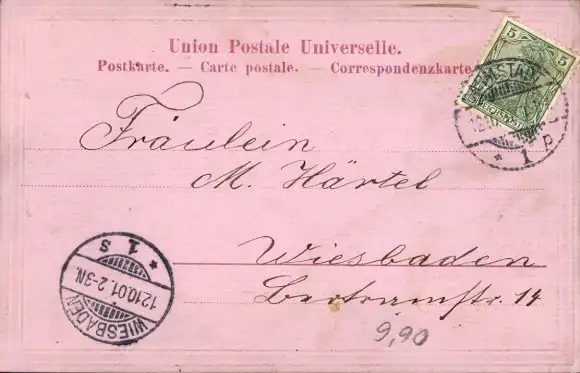 Union Postale Universelle.
Postkarte. — Carte postale. — Correspondenzkarte.
5 5
1 p
Fräulein
M. Härtel
Wiesbaden
Bertramstr. 14
9,90
WIESBADEN
12.10.01. 2-3N.
* 1 s